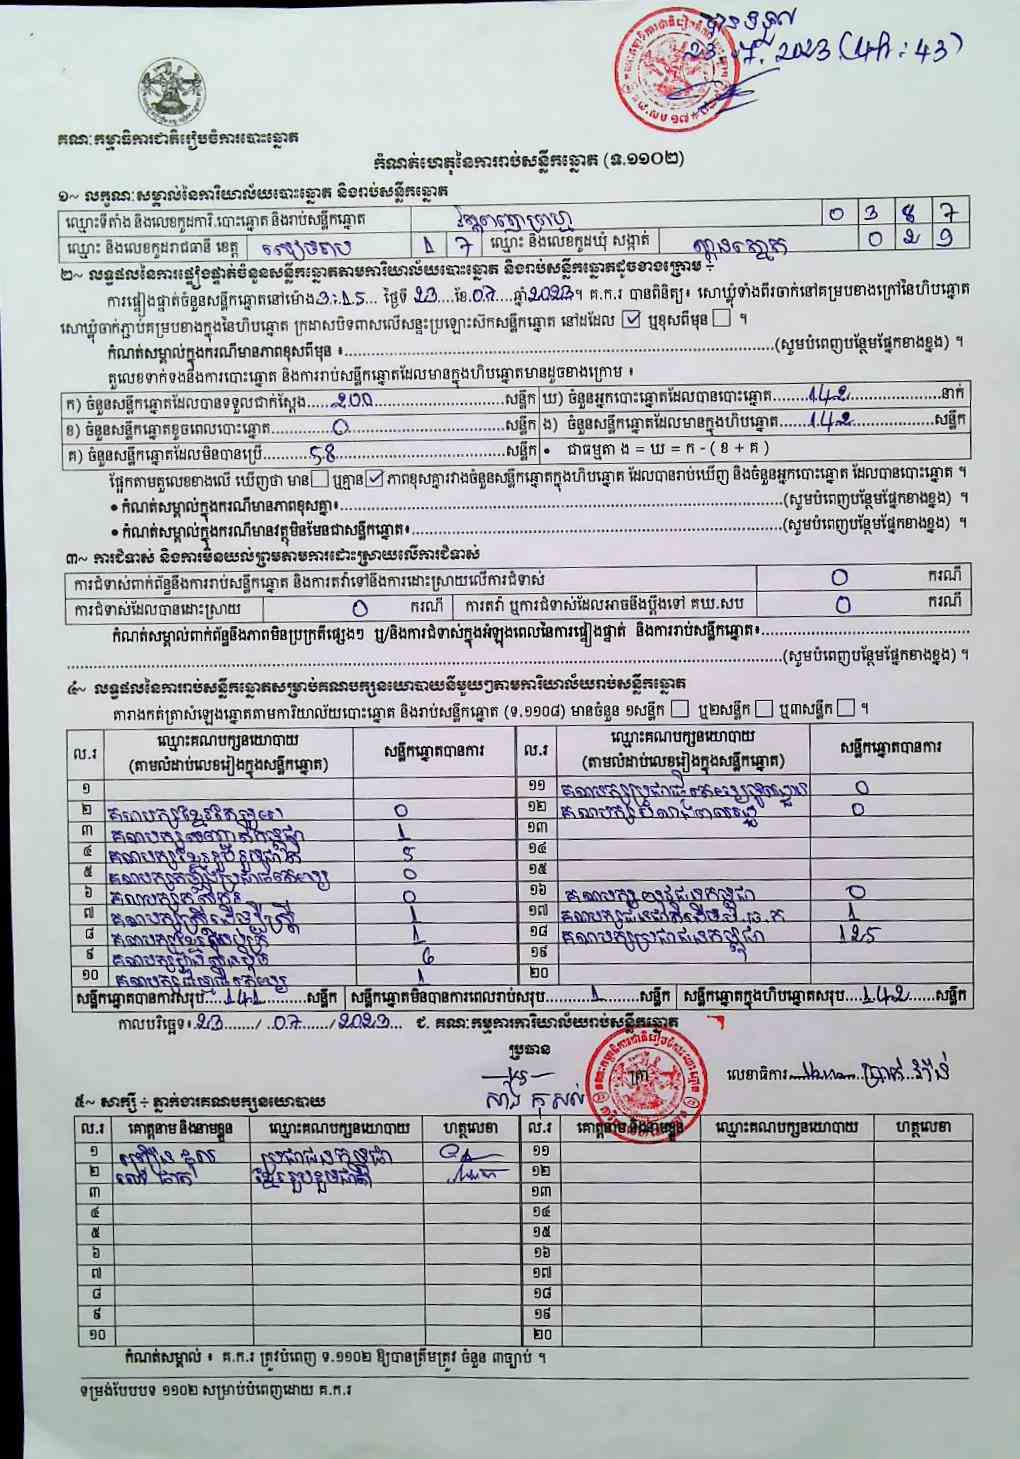 បានទទួល
23.7.2023 (4h:43)
គណៈកម្មាធិការជាតិរៀបចំការបោះឆ្នោត
កំណត់ហេតុនៃការរាប់សន្លឹកឆ្នោត (ទ.១១០២)
១~ លក្ខណៈសម្គាល់នៃការិយាល័យបោះឆ្នោត និងរាប់សន្លឹកឆ្នោត
ឈ្មោះទីតាំង និងលេខកូដការិ.បោះឆ្នោត និងរាប់សន្លឹកឆ្នោត 0 3 8 7
ឈ្មោះ និងលេខកូដរាជធានី ខេត្ត សៀមរាប 1 7 ឈ្មោះ និងលេខកូដឃុំ សង្កាត់ 0 2 9
២~ លទ្ធផលនៃការផ្ទៀងផ្ទាត់ចំនួនសន្លឹកឆ្នោតតាមការិយាល័យបោះឆ្នោត និងរាប់សន្លឹកឆ្នោតដូចខាងក្រោម ÷
ការផ្ទៀងផ្ទាត់ចំនួនសន្លឹកឆ្នោតនៅម៉ោង 3:15... ថ្ងៃទី 23....ខែ.07....ឆ្នាំ 2023។ គ.ក.រ បានពិនិត្យ៖ សោឃ្លុំទាំងពីរចាក់នៅគម្របខាងក្រៅនៃហិបឆ្នោត
សោឃ្លុំចាក់ភ្ជាប់គម្របខាងក្នុងនៃហិបឆ្នោត ក្រដាសបិទពាសលើសន្ទះប្រឡោះស៊កសន្លឹកឆ្នោត នៅដដែល ☑ ឬខុសពីមុន ☐ ។
កំណត់សម្គាល់ក្នុងករណីមានភាពខុសពីមុន ៖......(សូមបំពេញបន្ថែមផ្នែកខាងខ្នង) ។
តួលេខទាក់ទងនឹងការបោះឆ្នោត និងការរាប់សន្លឹកឆ្នោតដែលមានក្នុងហិបឆ្នោតមានដូចខាងក្រោម ៖
ក) ចំនួនសន្លឹកឆ្នោតដែលបានទទួលជាក់ស្តែង......200......សន្លឹក ឃ) ចំនួនអ្នកបោះឆ្នោតដែលបានបោះឆ្នោត......142......នាក់
ខ) ចំនួនសន្លឹកឆ្នោតខូចពេលបោះឆ្នោត......0......សន្លឹក ង) ចំនួនសន្លឹកឆ្នោតដែលមានក្នុងហិបឆ្នោត......142......សន្លឹក
គ) ចំនួនសន្លឹកឆ្នោតដែលមិនបានប្រើ......58......សន្លឹក • ជាធម្មតា ង = ឃ = ក - ( ខ + គ )
ផ្អែកតាមតួលេខខាងលើ ឃើញថា មាន ☐ ឬគ្មាន ☑ ភាពខុសគ្នារវាងចំនួនសន្លឹកឆ្នោតក្នុងហិបឆ្នោត ដែលបានរាប់ឃើញ និងចំនួនអ្នកបោះឆ្នោត ដែលបានបោះឆ្នោត ។
• កំណត់សម្គាល់ក្នុងករណីមានភាពខុសគ្នា៖......(សូមបំពេញបន្ថែមផ្នែកខាងខ្នង) ។
• កំណត់សម្គាល់ក្នុងករណីមានវត្ថុមិនមែនជាសន្លឹកឆ្នោត៖......(សូមបំពេញបន្ថែមផ្នែកខាងខ្នង) ។
៣~ ការជំទាស់ និងការមិនយល់ព្រមតាមការដោះស្រាយលើការជំទាស់
ការជំទាស់ពាក់ព័ន្ធនឹងការរាប់សន្លឹកឆ្នោត និងការតវ៉ាទៅនឹងការដោះស្រាយលើការជំទាស់ 0 ករណី
ការជំទាស់ដែលបានដោះស្រាយ 0 ករណី ការតវ៉ា ឬការជំទាស់ដែលអាចនឹងប្តឹងទៅ គឃ.សប 0 ករណី
កំណត់សម្គាល់ពាក់ព័ន្ធនឹងភាពមិនប្រក្រតីផ្សេងៗ ឬ/និងការជំទាស់ក្នុងអំឡុងពេលនៃការផ្ទៀងផ្ទាត់ និងការរាប់សន្លឹកឆ្នោត៖......
......(សូមបំពេញបន្ថែមផ្នែកខាងខ្នង) ។
៤~ លទ្ធផលនៃការរាប់សន្លឹកឆ្នោតសម្រាប់គណបក្សនយោបាយនីមួយៗតាមការិយាល័យរាប់សន្លឹកឆ្នោត
តារាងកត់ត្រាសំឡេងឆ្នោតតាមការិយាល័យបោះឆ្នោត និងរាប់សន្លឹកឆ្នោត (ទ.១១០៨) មានចំនួន ១សន្លឹក ☐ ឬ២សន្លឹក ☐ ឬ៣សន្លឹក ☐ ។
ល.រ ឈ្មោះគណបក្សនយោបាយ (តាមលំដាប់លេខរៀងក្នុងសន្លឹកឆ្នោត) សន្លឹកឆ្នោតបានការ ល.រ ឈ្មោះគណបក្សនយោបាយ (តាមលំដាប់លេខរៀងក្នុងសន្លឹកឆ្នោត) សន្លឹកឆ្នោតបានការ
១ ១១ គណបក្សប្រជាធិបតេយ្យមូលដ្ឋាន 0
២ គណបក្សខ្មែរតែមួយ 0 ១២ 0
៣ គណបក្សសញ្ជាតិកម្ពុជា 1 ១៣
៤ គណបក្សខ្មែររួបរួមជាតិ 5 ១៤
៥ គណបក្សកម្លាំងប្រជាធិបតេយ្យ 0 ១៥
៦ គណបក្សកសិករ 0 ១៦ គណបក្សយុវជនកម្ពុជា 0
៧ គណបក្សស្ត្រីដើម្បីស្ត្រី 1 ១៧ 1
៨ 1 ១៨ គណបក្សប្រជាជនកម្ពុជា 125
៩ គណបក្សហ្វ៊ុនស៊ិនប៉ិច 6 ១៩
១០ 1 ២០
សន្លឹកឆ្នោតបានការសរុប....141......សន្លឹក សន្លឹកឆ្នោតមិនបានការពេលរាប់សរុប......1......សន្លឹក សន្លឹកឆ្នោតក្នុងហិបឆ្នោតសរុប....142......សន្លឹក
កាលបរិច្ឆេទ៖ 23....../ .07....../ 2023... ជ. គណៈកម្មការការិយាល័យរាប់សន្លឹកឆ្នោត
ប្រធាន
ត្រា លេខាធិការ
៥~ សាក្សី ÷ ភ្នាក់ងារគណបក្សនយោបាយ
ល.រ គោត្តនាម និងនាមខ្លួន ឈ្មោះគណបក្សនយោបាយ ហត្ថលេខា ល.រ គោត្តនាម និងនាមខ្លួន ឈ្មោះគណបក្សនយោបាយ ហត្ថលេខា
១ ប្រជាជនកម្ពុជា ១១
២ ខ្មែររួបរួមជាតិ ១២
៣ ១៣
៤ ១៤
៥ ១៥
៦ ១៦
៧ ១៧
៨ ១៨
៩ ១៩
១០ ២០
កំណត់សម្គាល់ ៖ គ.ក.រ ត្រូវបំពេញ ទ.១១០២ ឱ្យបានត្រឹមត្រូវ ចំនួន ៣ច្បាប់ ។
ទម្រង់បែបបទ ១១០២ សម្រាប់បំពេញដោយ គ.ក.រ